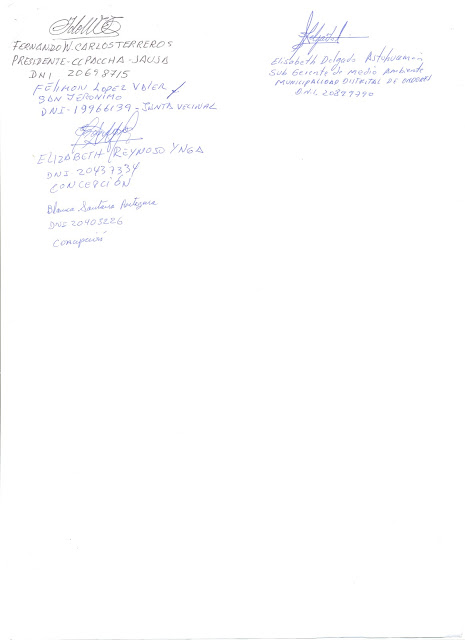 FERNANDO W. CARLOS TERREROS
PRESIDENTE - CC PACCHA - JAUJA
DNI 20698715
FÉLIMON LOPEZ VALER
SAN JERONIMO
DNI - 19966139 - JUNTA VECINAL
ELIZABETH REYNOSO YNGA
DNI 20437334
CONCEPCIÓN
Blanca Santana
DNI 20403226
Concepción
Elisabeth Delgado Astohuaman
Sub Gerente de Medio Ambiente
MUNICIPALIDAD DISTRITAL DE
D.N.I. 20897790